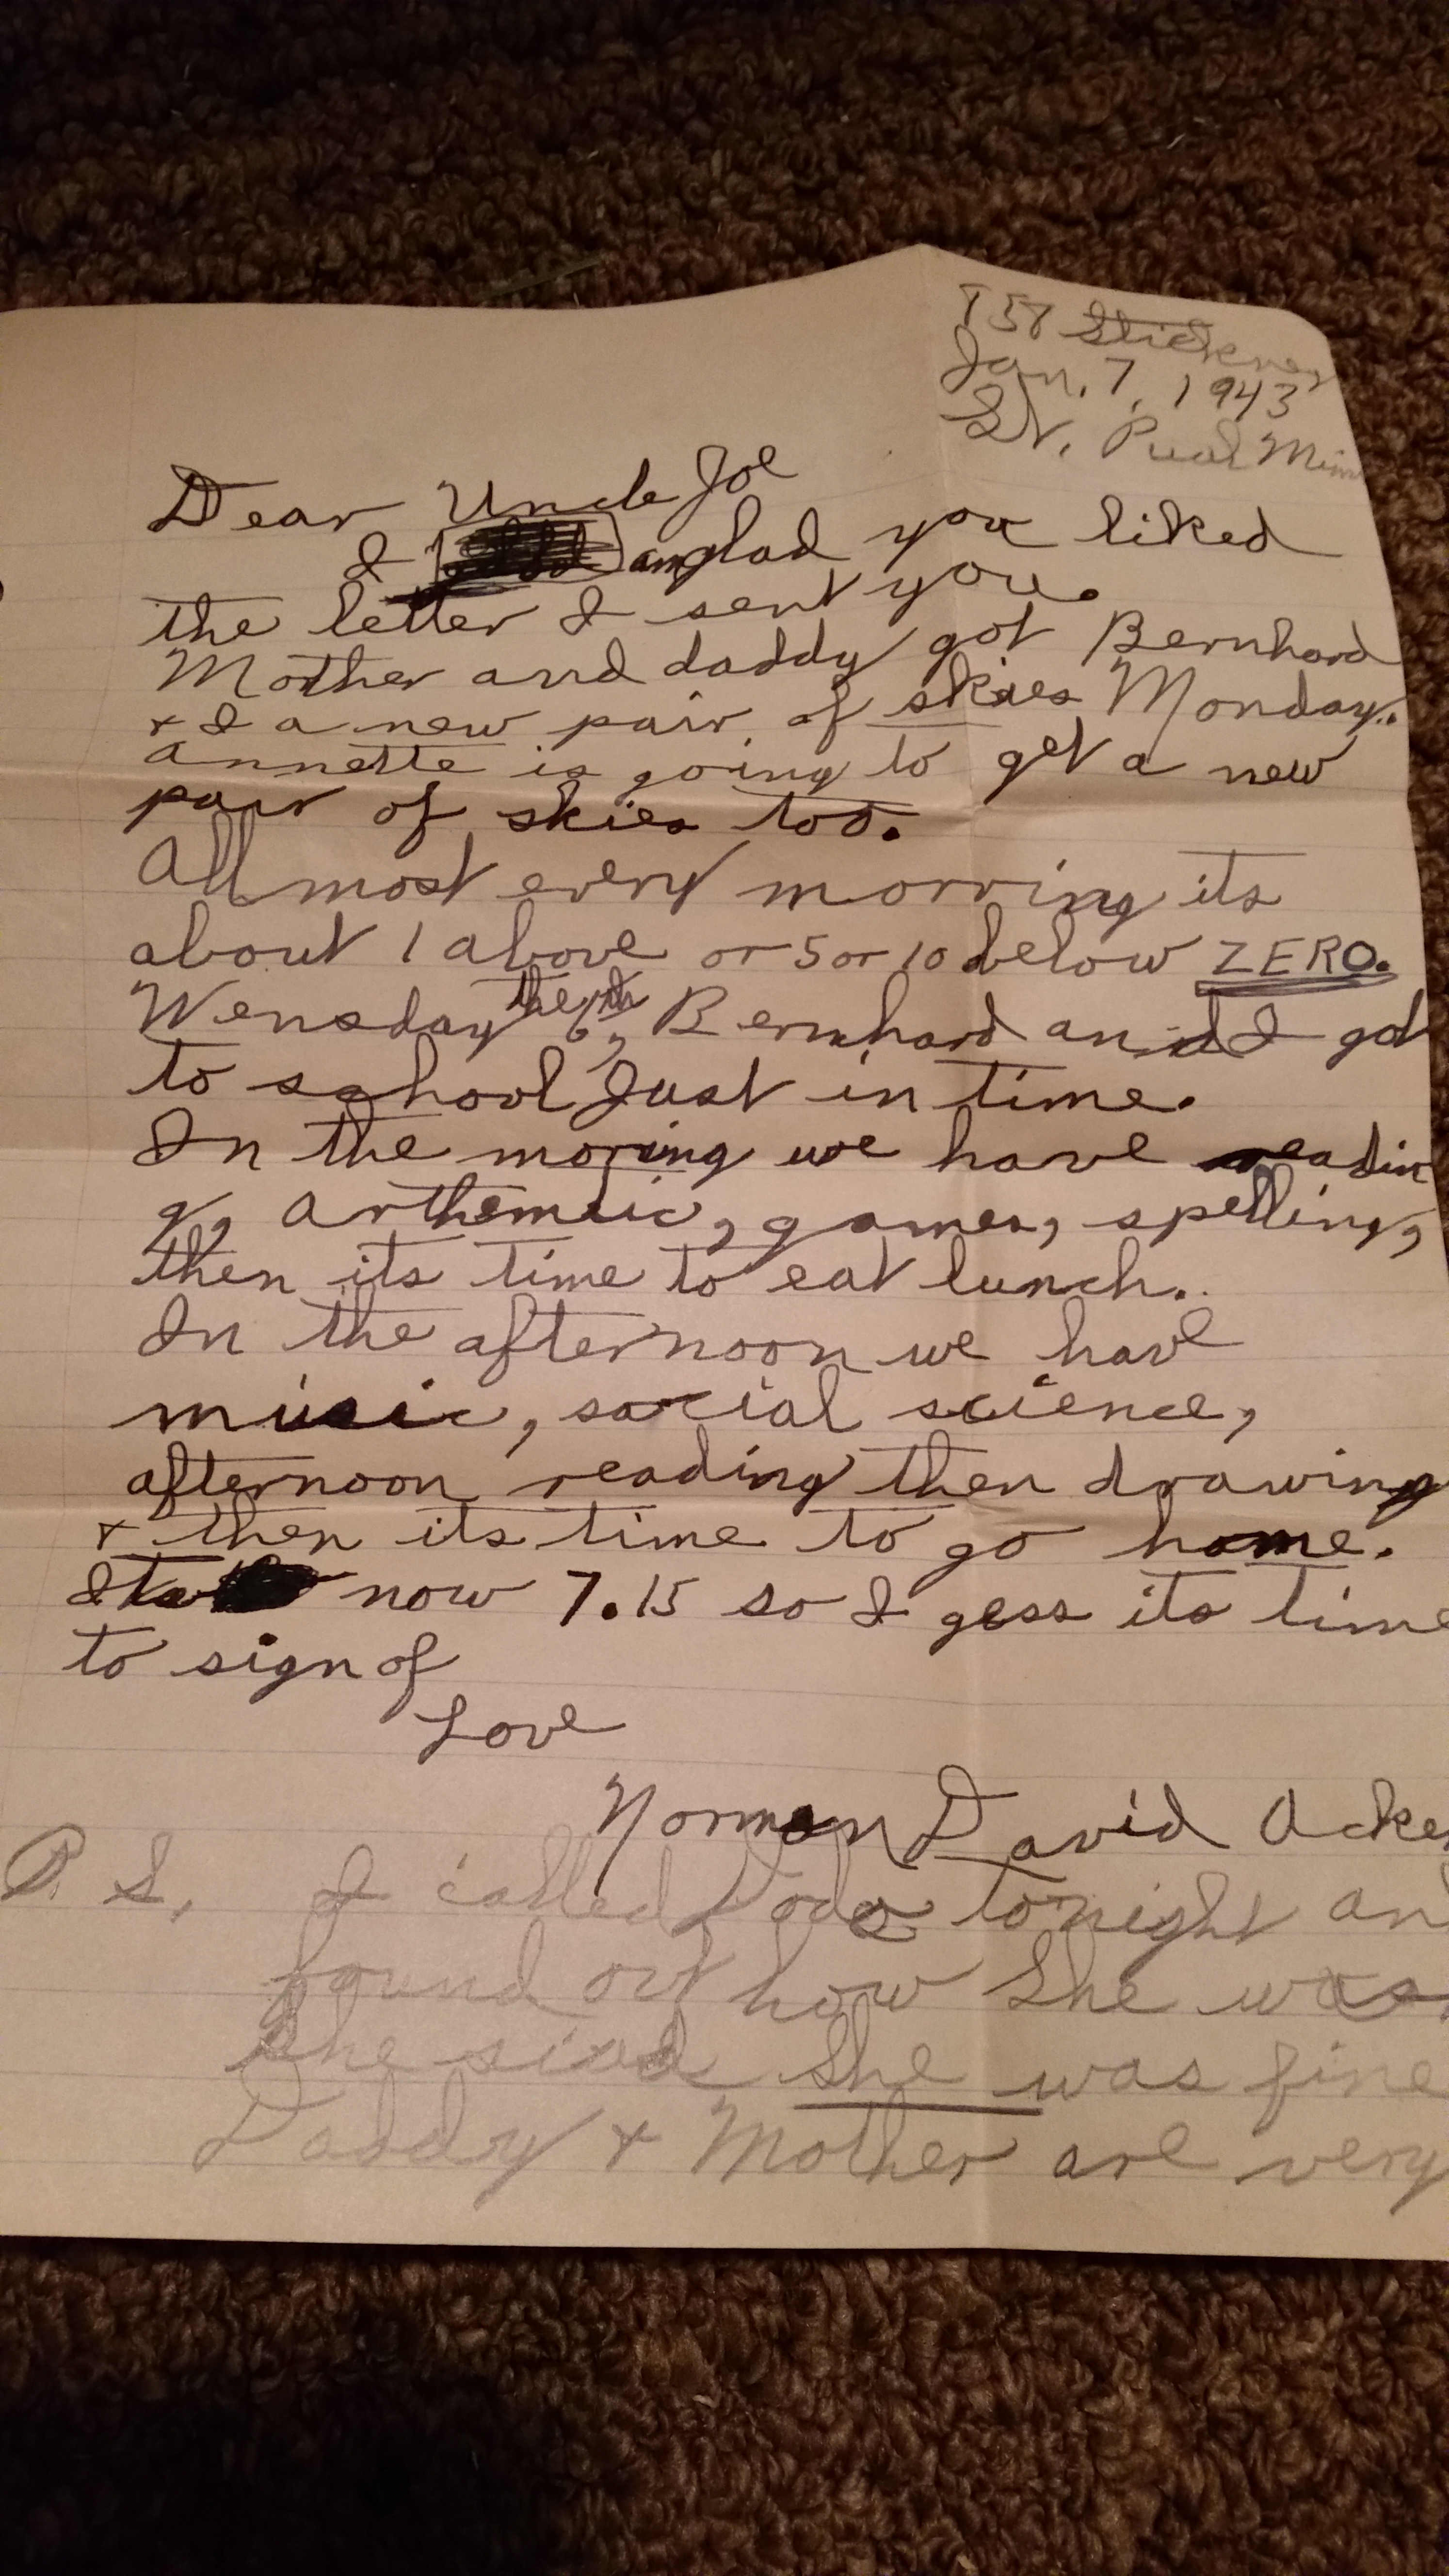 858 Stickney
Jan. 7, 1943
St. Pual Minn
Dear Uncle Joe
I am glad you liked
the letter I sent you.
Mother and daddy got Bernhard
+ I a new pair of skies Monday.
Annette is going to get a new
pair of skies too.
All most every morring its
about 1 above or 5 or 10 below ZERO.
Wensday the 6th, Bernhard and I got
to school just in time.
In the moring we have readin
g, arthemeic, games, spelling,
then its time to eat lunch.
In the afternoon we have
music, social science,
afternoon reading then drawing
+ then its time to go home.
Its now 7.15 so I gess its time
to sign of
Love
Norman David Acke
P. S. I called Dodo tonight an
found out how she was.
She siad she was fine
Daddy + Mother are very